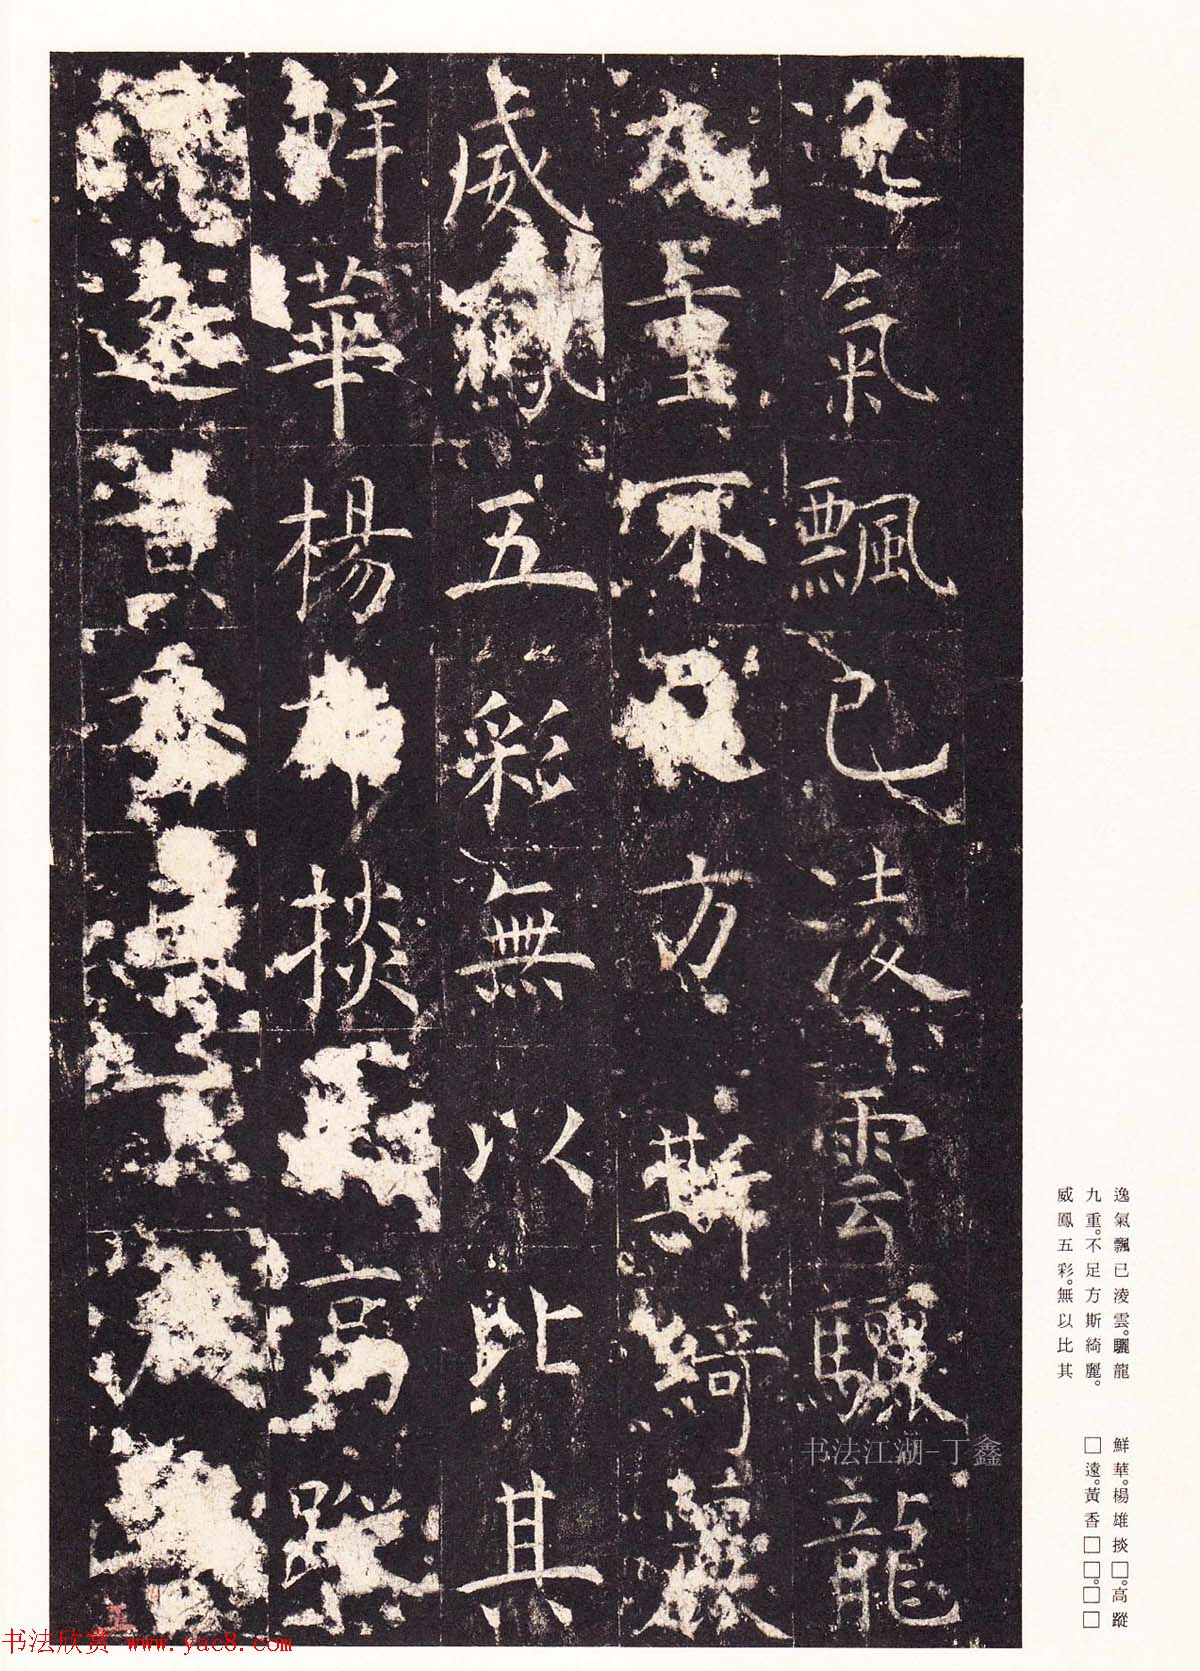 逸氣飄已淩雲驪龍
九重不足方斯綺麗
威鳳五彩無以比其
鮮華楊雄掞 高蹤
遠黃香
逸氣飄已淩雲。驪龍
九重。不足方斯綺麗。
威鳳五彩。無以比其
鮮華。楊雄掞□。高蹤
□遠。黃香□□。□□
书法江湖-丁鑫
书法欣赏 www.yac8.com